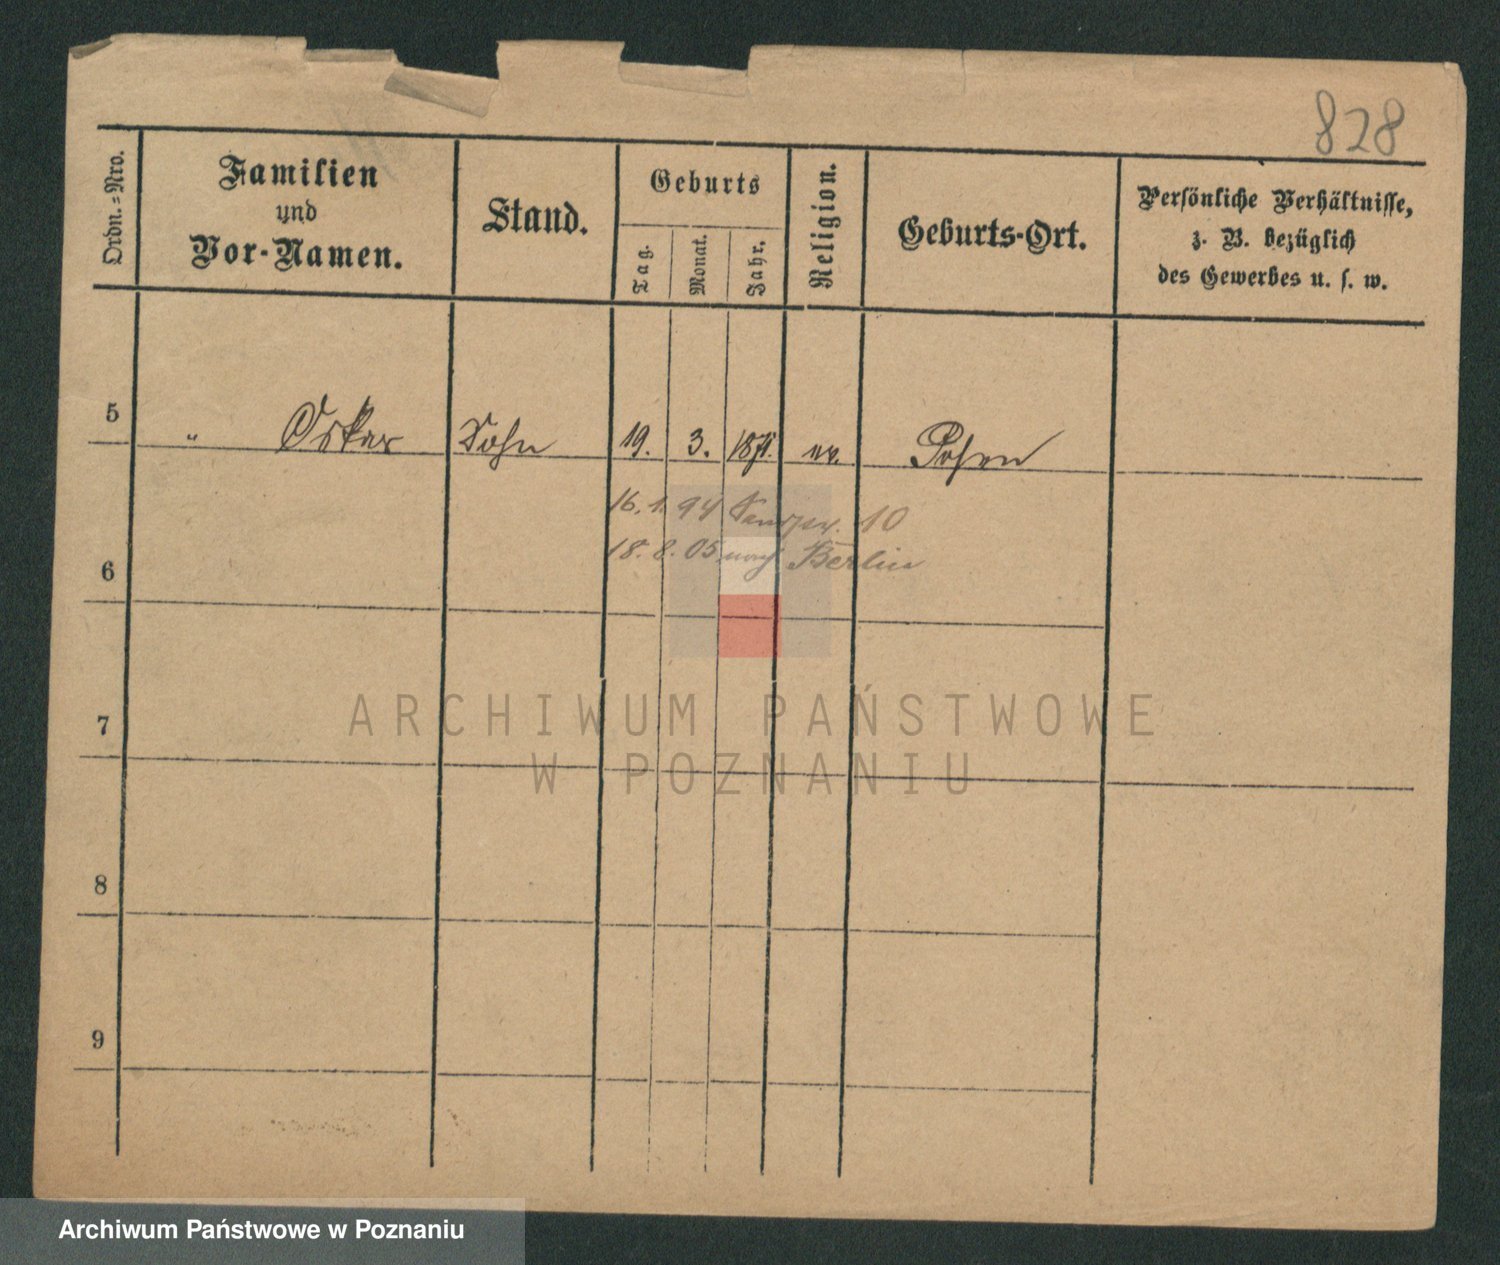 828
Ordn.-Nro.
Familien
und
Vor-Namen.
Stand.
Geburts
Tag.
Monat.
Jahr.
Religion.
Geburts-Ort.
Persönliche Verhältnisse,
z. B. bezüglich
des Gewerbes u. s. w.
5 " Oskar Sohn 19. 3. 1871. ev. Posen
16. 1. 94 10
18. 8. 05 nach Berlin
6
ARCHIWUM PAŃSTWOWE
W POZNANIU
7
8
9
Archiwum Państwowe w Poznaniu